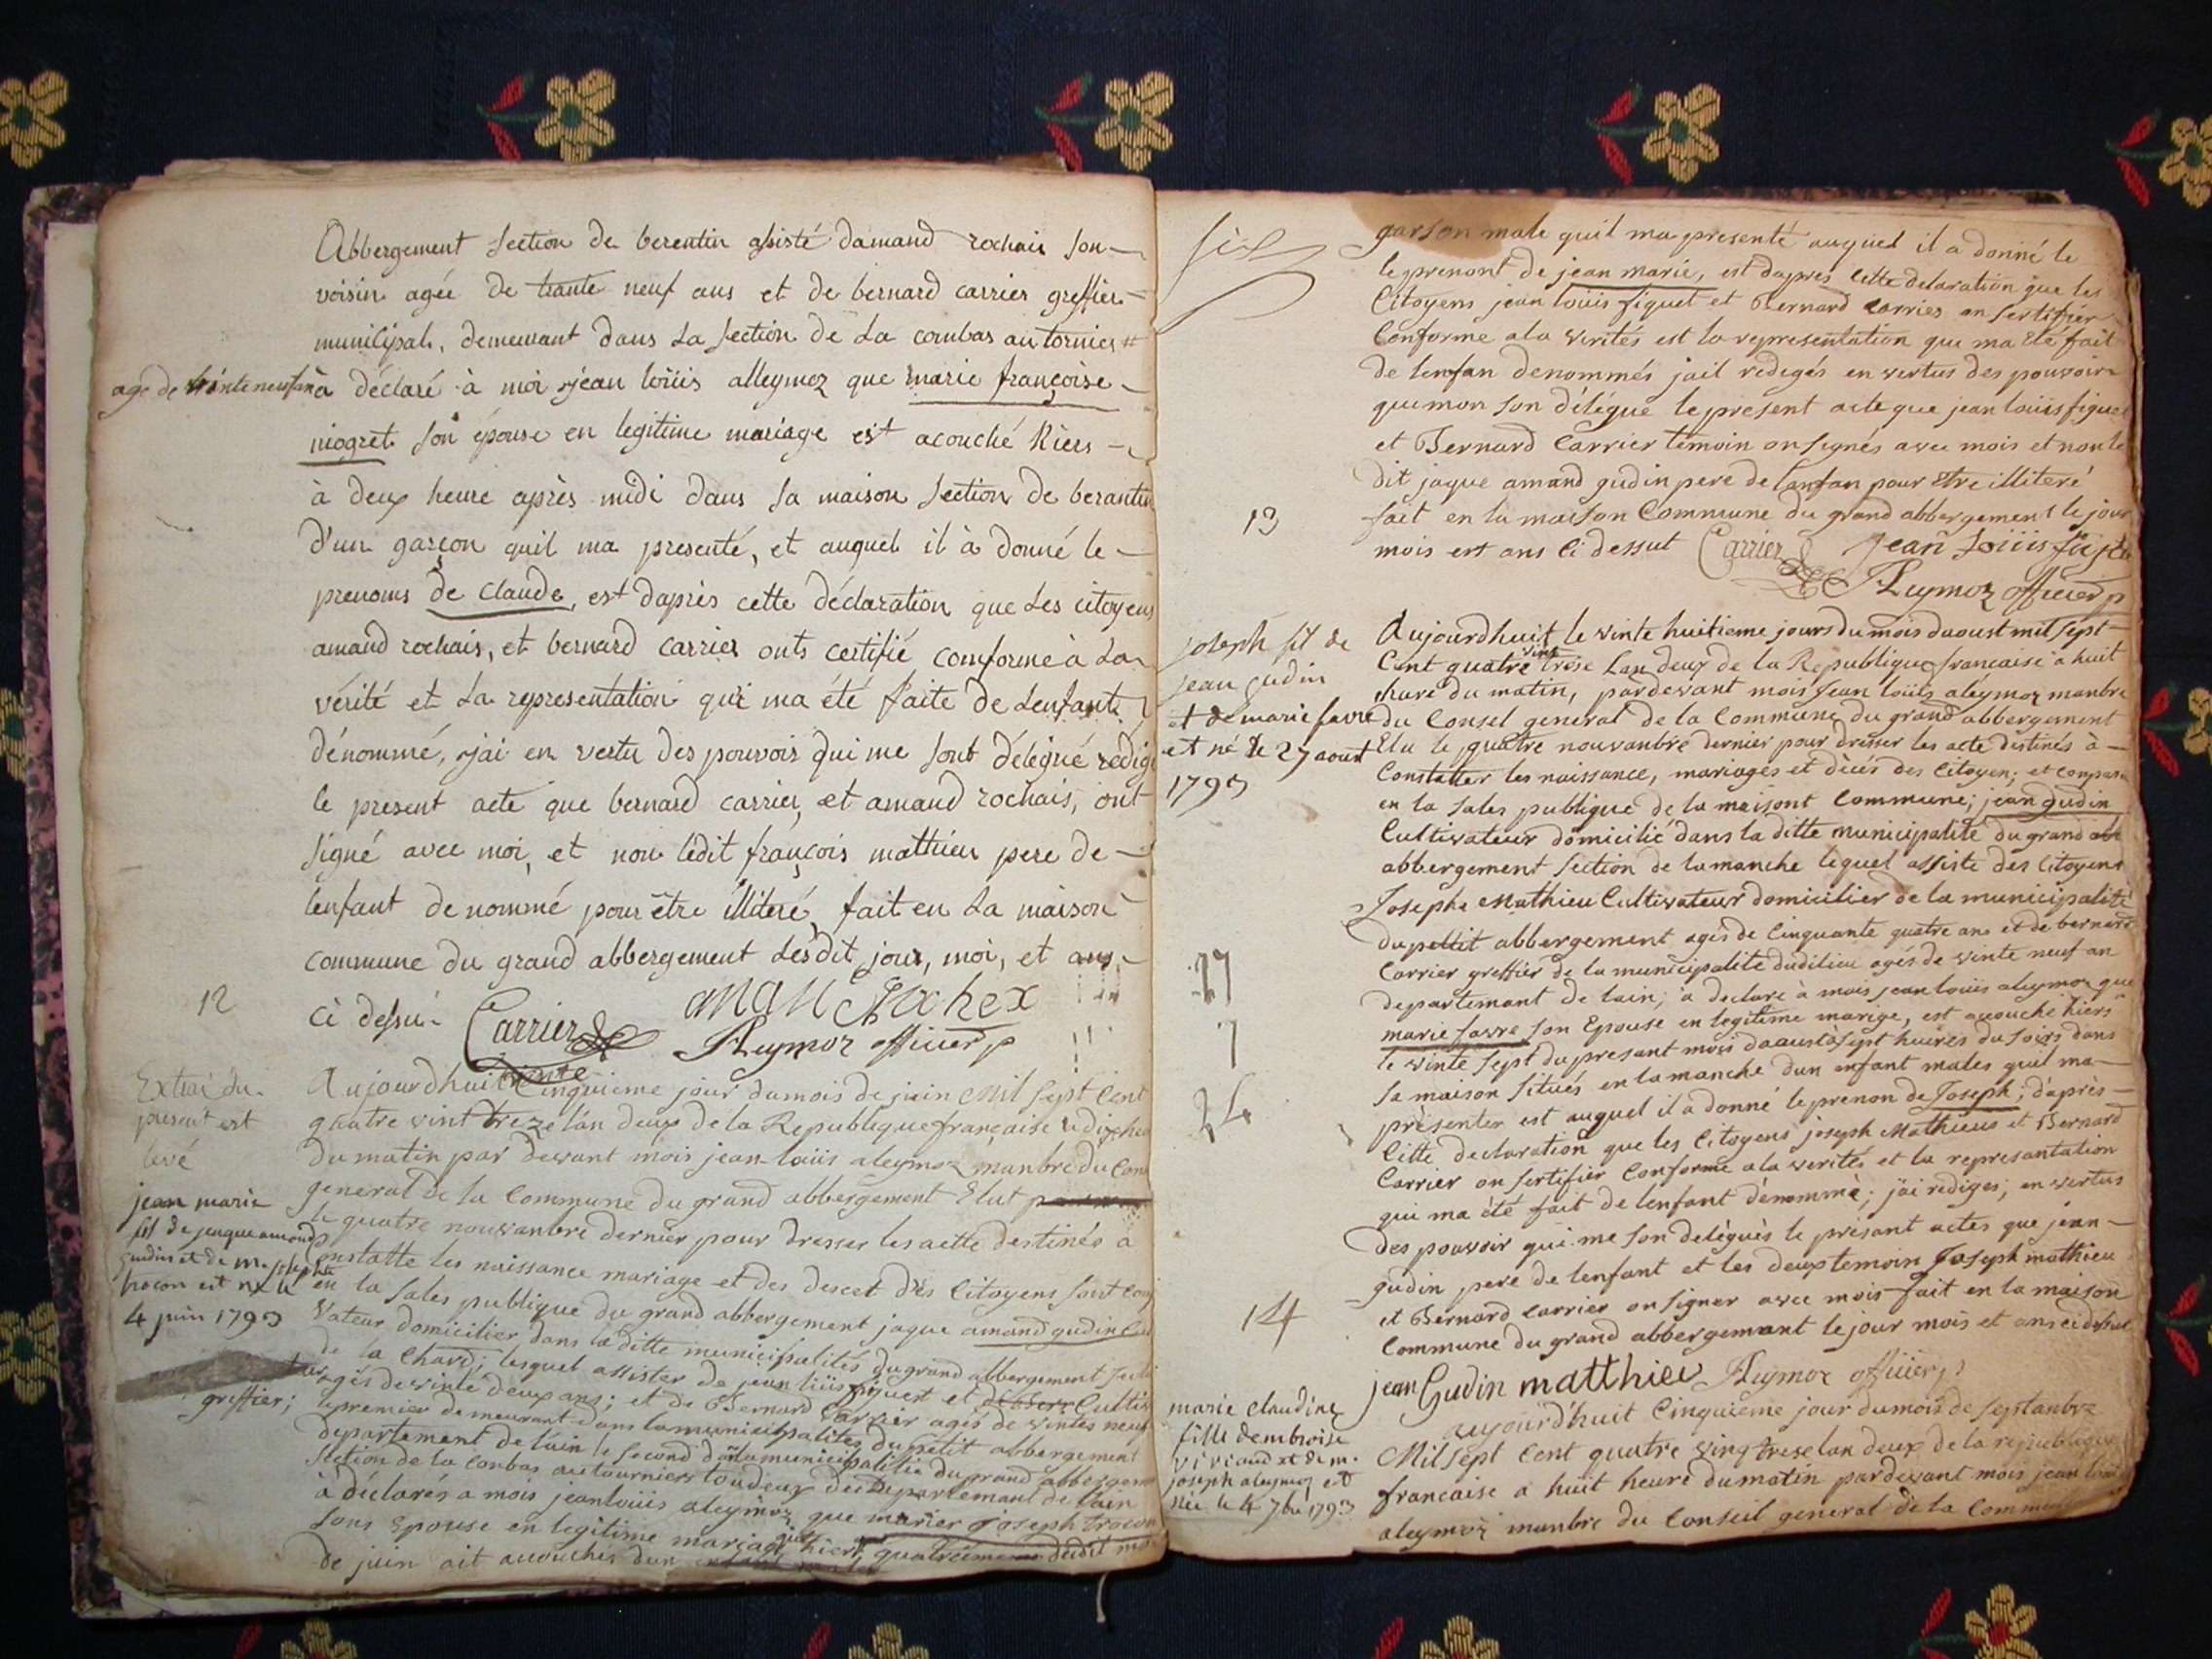 Abbergement section de berentin assisté damand rochais son
voisin agée de trante neuf ans et de bernard carrier greffier
municipal, demeurant dans La section de La combas au tornier #
age de trente neuf an
a déclaré à moi jean loüis alleymoz que marie françoise
niogret son épouse en legitime mariage est acouché hiers
à deux heure après midi dans sa maison section de berantin
d'un garçon quil ma presenté, et auquel il à donné le
prenoms de claude, est daprès cette déclaration que Les citoyens
amand rochais, et bernard carrier onts certifié comforme à La
vérité et La representation qui ma été faite de Lenfant
dénommé, jai en vertu des pouvoir qui me sont délégué redigé
le present acte que bernard carrier, et amand rochais, ont
signé avec moi, et non lédit françois mathieu pere de
lenfant denommé pour être illiteré, fait en La maison
commune du grand abbergement Lesdit jour, moi, et ans
ci dessu.
Carrier
Aleymoz officier p
12
Extrai du
present est
levé
jean marie
fil de jaque amand
gudin et de m. josephte
est né le
4 juin 1793
greffier;
Aujourdhuit Cinquieme jour dumois de juin Mil Sept Cent
quatre vint treze lán deux de la Republique française a dix heu
du matin par devant mois jean loüis aleymoz manbre du Cons
general de la Commune du grand abbergement Elut
le quatre nouvanbre dernier pour dresser les actte destinés a
Constatte les naissance mariage et des descet dès Citoyens sont Com
en la sales publique du grand abbergement jaque amand gudin Cul
vateur domicilier dans la ditte municipalités du grand abbergement secti
de la Chard; lesquel assister de jean loüis figuest et Cultiv
agés de vinte deux ans; et de Bernard Carrier agés de vintes neuf
le premier demeurant dans la municipalites du petit abbergement
departement de lain le second dans la municipalitée du grand abbergem
section de la Conbas au tourniers tou deux du Departemant de lain
à déclarés a mois jean loüis aleymoz que marier joseph trocon
sons Epouse en legitime mariage hiert quatriéme dudit moi
de juin ait acouchés dun
six
13
garson male quil ma presenté auquel il a donné le
le prenont de jean marie, est dapres cette declaration que les
Citoyens jean loüis figuet et Bernard Carrier on sertifier
Conforme a la verités est la representation que ma été fait
de lenfan denommés jail redegés en vertus des pouvoir
que mon son délégue le present acte que jean loüis figuet
et Bernard Carrier témoin on signés avec mois et non le
dit jaque amand gudin pere de lanfan pour Etre illiteré
fait en la maison Commune du grand abbergement le jour
mois est ans Ci dessut Carrier Jean Loüis
Aleymoz officier p
joseph fil de
jean gudin
et de marie favre
et né le 27 aout
1793
Aujourdhuit le vinte huitieme jours du mois daoust mil sept
Cent quatre vint trese Lan deux de la Republique francaise a huit
hure du matin, pardevant mois jean loüis aleymoz manbre
du Consel general de la Commune du grand abbergement
Elu le quatre nouvanbre dernier pour dresser les acte distinés à
Constatter les naissance, mariages et dècés des Citoyen; et conparu
en la sales publique de la maisont Commune; jean gudin
Cultivateur domicilié dans la ditte municipalité du grand abb
abbergement section de lamanche lequel assiste des Citoyens
Josephe Mathieu Cultivateur domicilier de la municipalité
du pettit abbergement agés de Cinquante quatre ans et de bernard
Carrier greffier de la municipalité dudilieu agés de vinte neuf an
departemant de lain; a declaré à mois jean loüis aleymoz que
marie favre son Epouse en legitime marige, est acouche hiers
le vinte sept du presant mois daaust à sept huires du soirs dans
sa maison situés en lamanche dun enfant males quil ma
prèsenter est auquel il a donné le prenon de Joseph; dàprès
Citte declaration que les Citoyens joseph Mathieus et Bernard
Carrier on sertifier Conforme a la verités et la represantation
qui ma été fait de lenfant dénommè; jài rediges; en vertus
des pouvoir qui me son delégués le présant actes que jean
gudin pere de lenfant et les deux temoin Joseph mathieu
et Bernard Carrier on signer avec mois fait en la maison
Commune du grand abbergemant le jour mois et ans ci dessut
jean Gudin matthieu Aleymoz officier p
27
7
24
14
marie claudine
fille dembroise
vivicand et de m.
joseph aleymoz est
née le 4 7bre 1793
aujourd'huit Cinquieme jour dumois de septanbre
Mil sept Cent quatre ving trese lan deux de la republique
francaise a huit heure du matin pardevant mois jean loüis
aleymoz manbre du Conseil general de la Commune